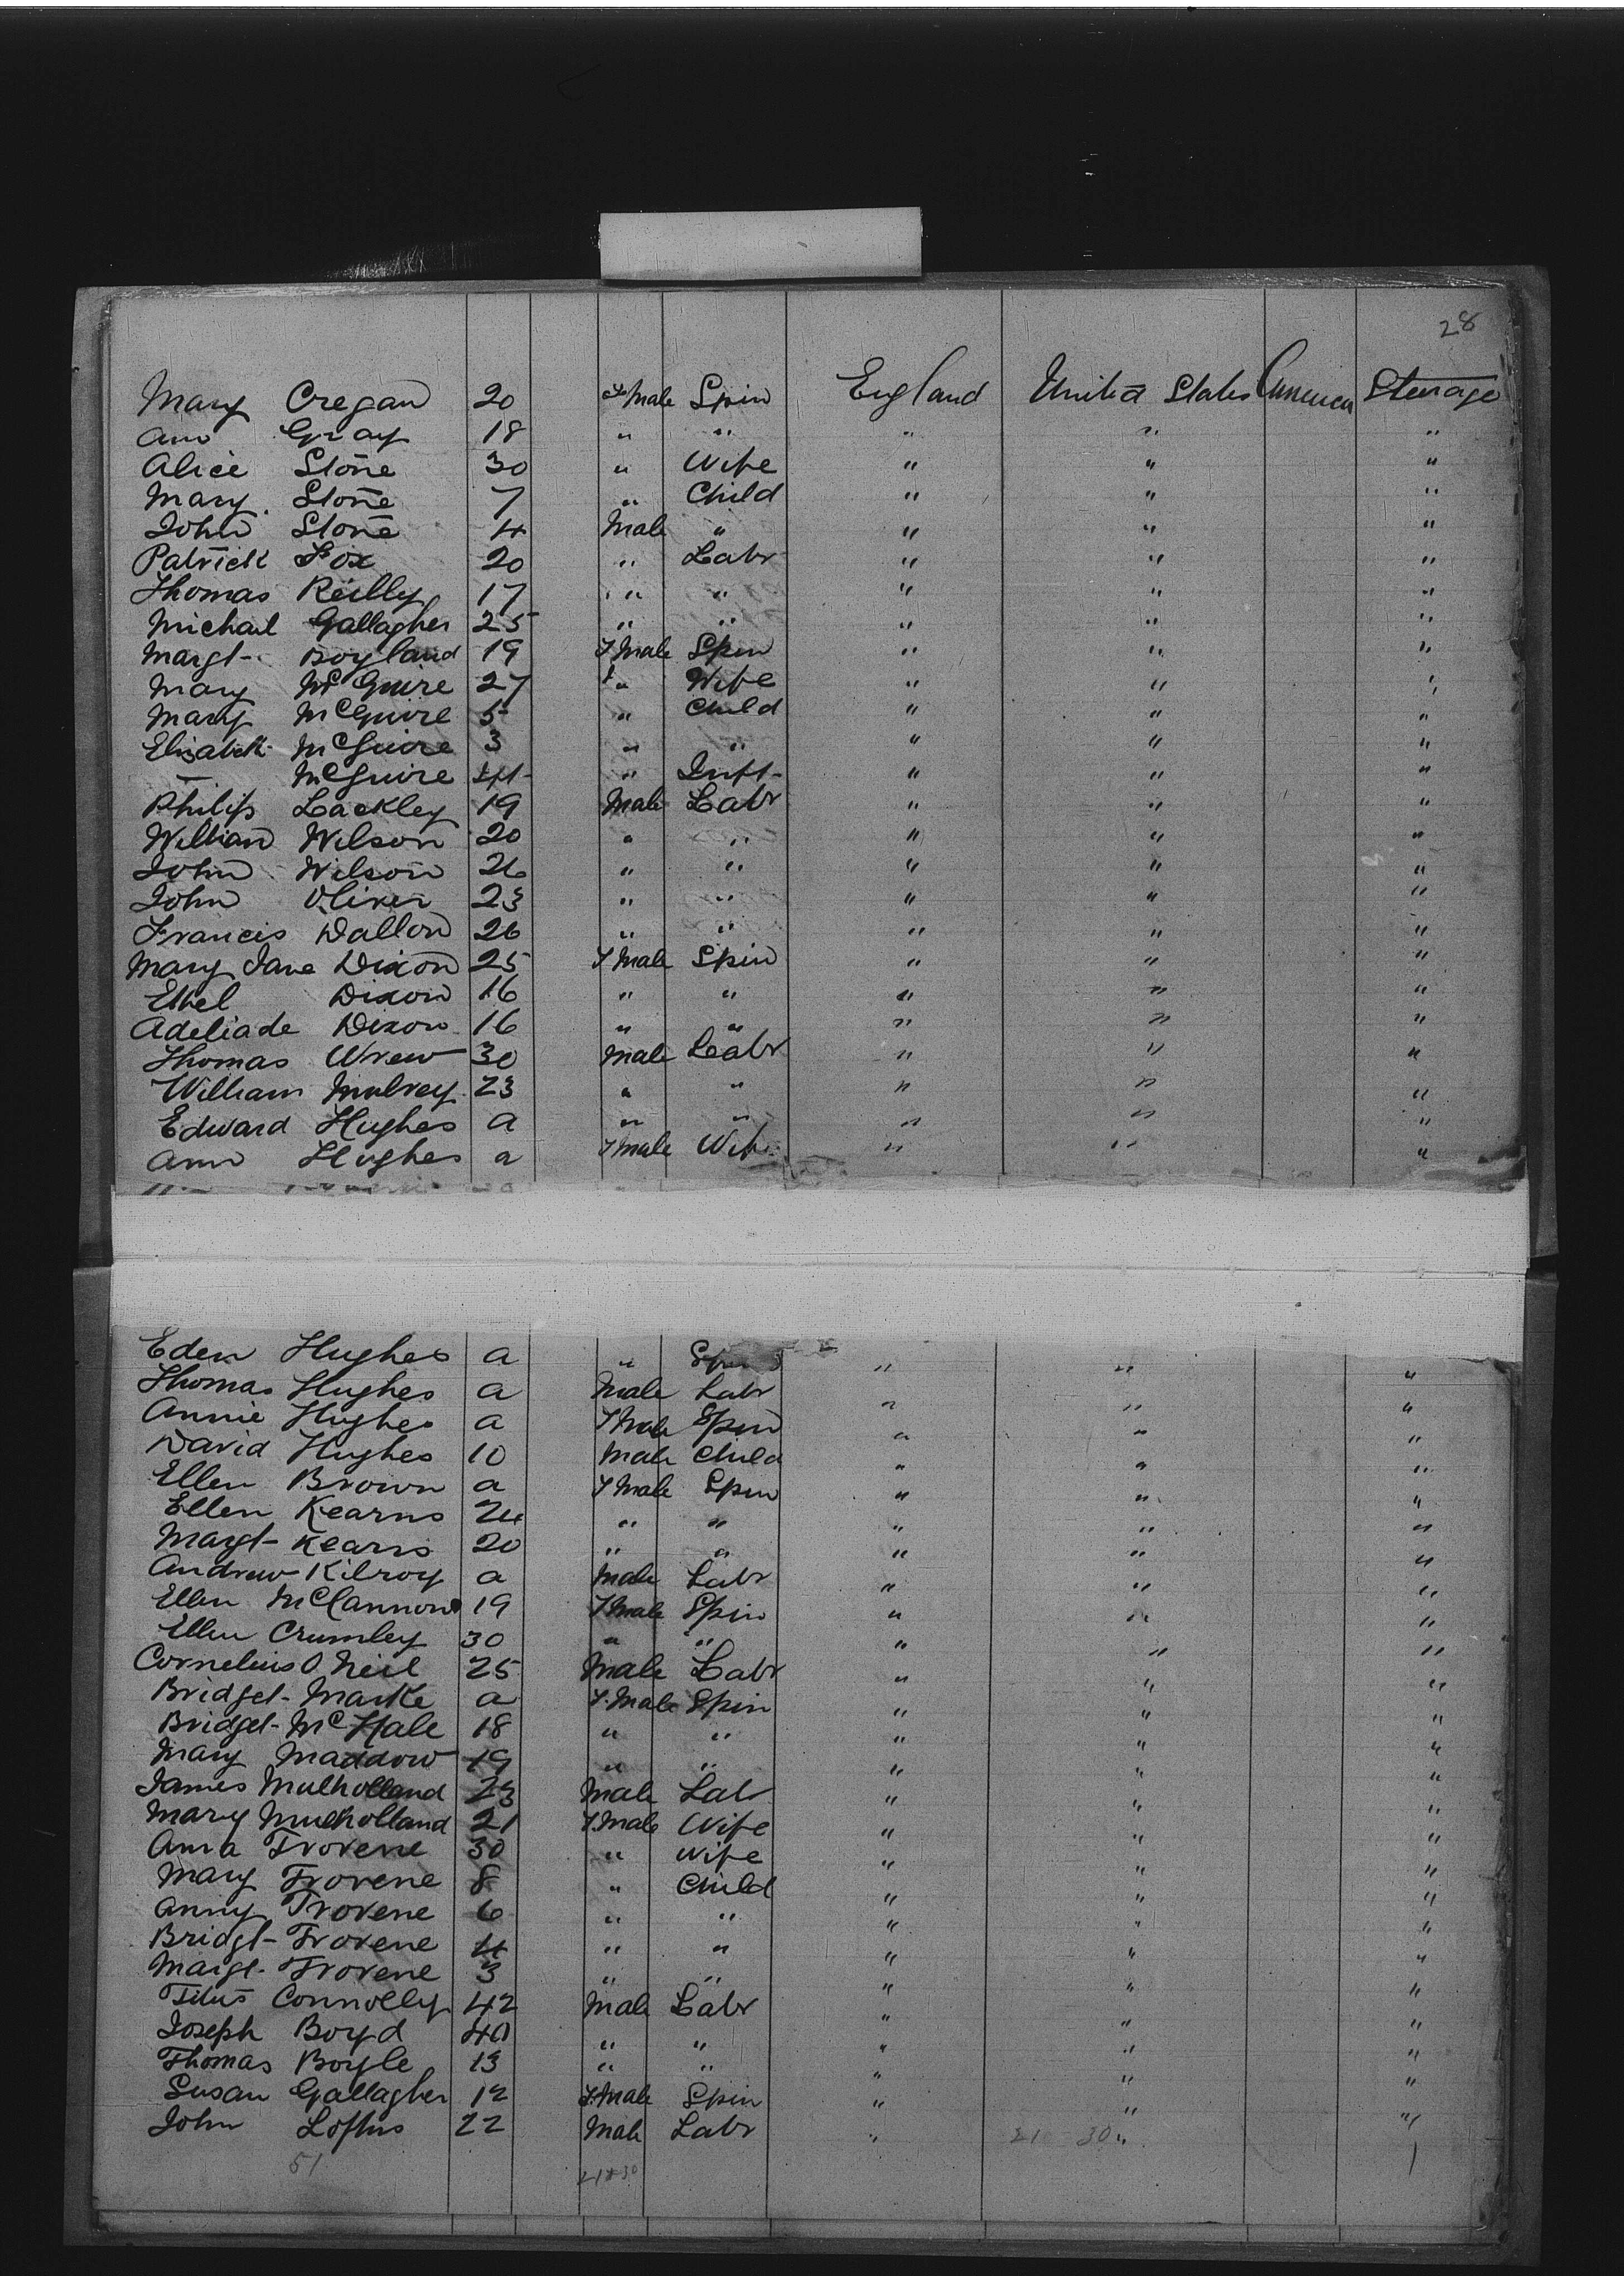 28
Mary Cregan 20 Fe Male Spin England United States America Steerage
Ann Gray 18 " " " " "
Alice Stone 30 " Wife " " "
Mary Stone 7 " Child " " "
John Stone 4 Male " " " "
Patrick Fox 20 " Labr " " "
Thomas Reilly 17 " " " " "
Michael Gallagher 25 " " " " "
Margt- Boyland 19 F Male Spin " " "
Mary McGuire 27 " Wife " " "
Mary McGuire 5 " Child " " "
Elizabeth McGuire 3 " " " " "
— McGuire " Inft- " " "
Philip Lackley 19 Male Labr " " "
William Wilson 20 " " " " "
John Wilson 26 " " " " "
John Oliver 23 " " " " "
Francis Dallon 26 " " " " "
Mary Jane Dixon 25 F Male Spin " " "
Ethel Dixon 16 " " " " "
Adeliade Dixon 16 " " " " "
Thomas Wrew 30 Male Labr " " "
William Mulvey 23 " " " " "
Edward Hughes a " " " " "
Ann Hughes a F Male Wife " " "
Eden Hughes a " Spin " " "
Thomas Hughes a Male Labr " " "
Annie Hughes a F Male Spin " " "
David Hughes 10 Male Child " " "
Ellen Brown a F Male Spin " " "
Ellen Kearns 24 " " " " "
Margt- Kearns 20 " " " " "
Andrew Kilroy a Male Labr " " "
Ellen McCannon 19 F Male Spin " " "
Ellen Crumley 30 " " " " "
Cornelius O Neil 25 Male Labr " " "
Bridget- Marke a F. Male Spin " " "
Bridget- McHale 18 " " " " "
Mary Maddow 19 " " " " "
James Mulholland 23 Male Labr " " "
Mary Mulholland 21 F. Male Wife " " "
Anna Trovene 30 " Wife " " "
Mary Trovene 8 " Child " " "
Anny Trovene 6 " " " " "
Bridgt- Trovene 4 " " " " "
Margt- Trovene 3 " " " " "
Titus Connolly 42 Male Labr " " "
Joseph Boyd 40 " " " " "
Thomas Boyle 13 " " " " "
Susan Gallagher 12 F. Male Spin " " "
John Loftus 22 Male Labr " 21 30 " "
51 21 + 30